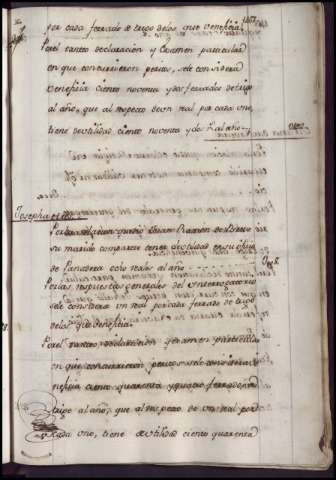 por cada ferrado de trigo de los que Veneficia
Por el tanteo declaracion y examen particular
en que concurrieron peritos, se le considera
Veneficia ciento noventa y dos ferrados de trigo
al año, que al respecto de un real por cada uno,
tiene de utilidad ciento noventa y dos Rs. al año
Josepha
Por la relacion que dio Ramon de
su marido comparece tener de utilidad en su oficio
de Panadera ocho reales al año
Por las respuestas generales del Ynterrogatorio
se le considera un real por cada ferrado de trigo
de los que Veneficia
Por el tanteo, declaracion y examen particular
en que concurrieron peritos se le considera
Veneficia ciento quarenta y quatro ferrados de
trigo al año, que al respecto de un real por
cada uno, tiene de utilidad ciento quarenta